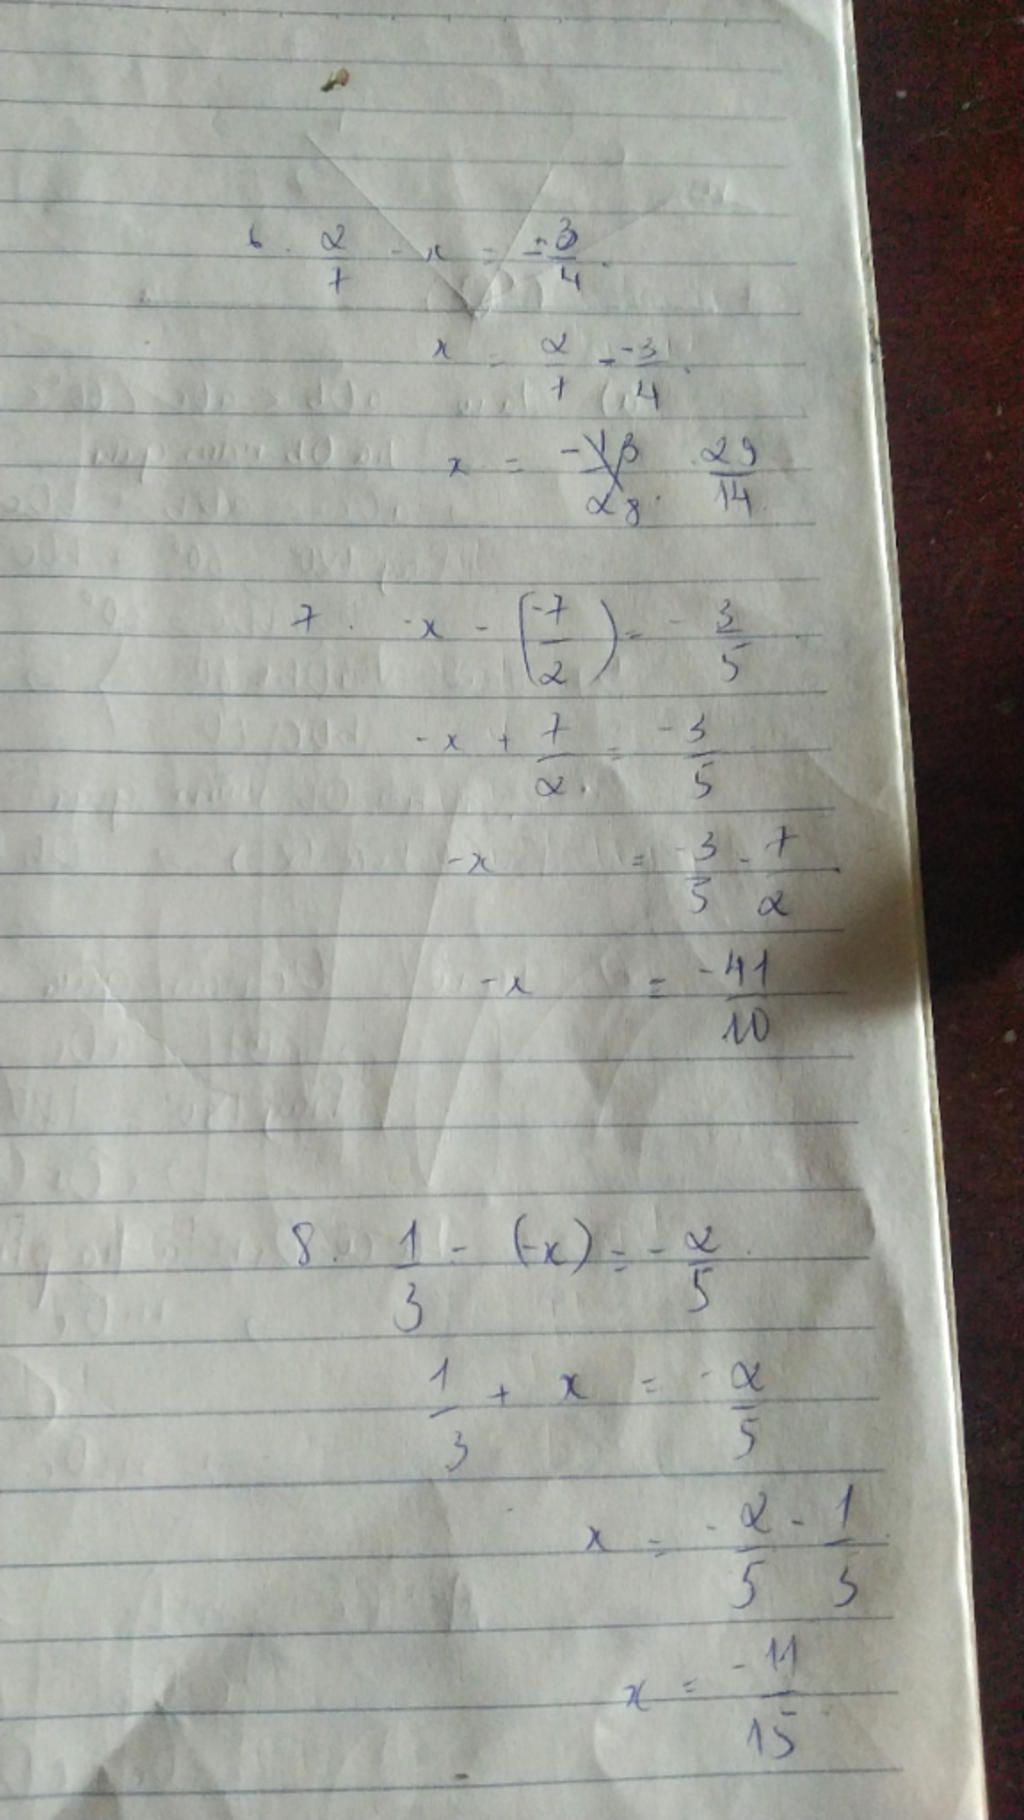 6. 2/7 - x = -3/4.
x = 2/7 - -3/4.
x = 29/14
7. -x - (-7/2) = -3/5
-x + 7/2 = -3/5
-x = -3/5 - 7/2
-x = -41/10
8. 1/3 - (-x) = -2/5
1/3 + x = -2/5
x = -2/5 - 1/3
x = -11/15